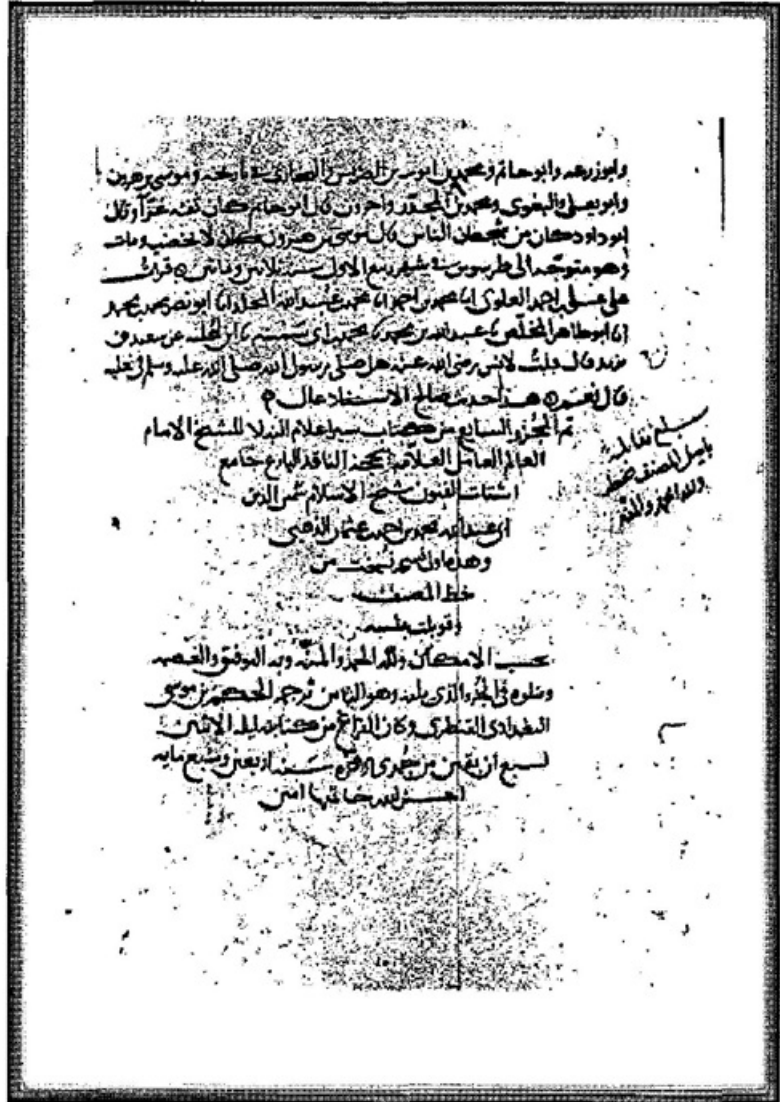 وابو زرعه وابو حاتم ومحمد بن ايوب بن الضريس والبخاري في تاريخه وموسى بن هرون
وابو يعلى والبغوي ومحمد بن المجدر واخرون قال ابو حاتم كان ثقه خيرا وقال
ابو داود كان من شجعان الناس قال موسى بن هرون كان لا يخضب ومات
وهو متوجه الى طرسوس في شهر ربيع الاول سنة ثلاثين ومائتين قرات
على علي بن احمد العلوي انا محمد بن احمد انا محمد بن عبيد الله المجلد انا ابو نصر محمد بن محمد
انا ابو طاهر المخلص نا عبد الله بن محمد نا محمد بن ابي سمينه نا ابن عليه عن سعيد بن
يزيد قال قلت لانس رضي الله عنه هل صلى رسول الله صلى الله عليه وسلم في نعليه
قال نعم هذا حديث صالح الاسناد عال
تم الجزو السابع من كتاب سير اعلام النبلا للشيخ الامام
العالم العامل العلامه الحجة الناقد البارع جامع
اشتات الفنون شيخ الاسلام شمس الدين
ابي عبد الله محمد بن احمد بن عثمان الذهبي
وهذه اول نسخه نسخت من
خط المصنف
وقوبلت عليه
بحسب الامكان ولله الحمد والمنه وبه التوفيق والعصمه
ويتلوه في الجزو الذي يليه وهو الثامن ترجمة الحكم بن موسى
البغدادي القنطري وكان الفراغ من كتابته ليلة الاثنين
لسبع ان بقين من جمدى الاخره سنة اربعين وسبع مايه
احسن الله خاتمتها امين
بلغ مقابلة
باصل المصنف بخطه
ولله الحمد والمنه